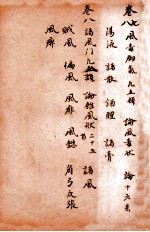 卷七 風毒脚氣 九五類 論風毒狀 論十六首
湯液 諸散 酒醴 諸膏
卷八 諸風門 九類 論雜風狀 諸風
賊風 偏風 風痱 風懿 角弓反張
風痺